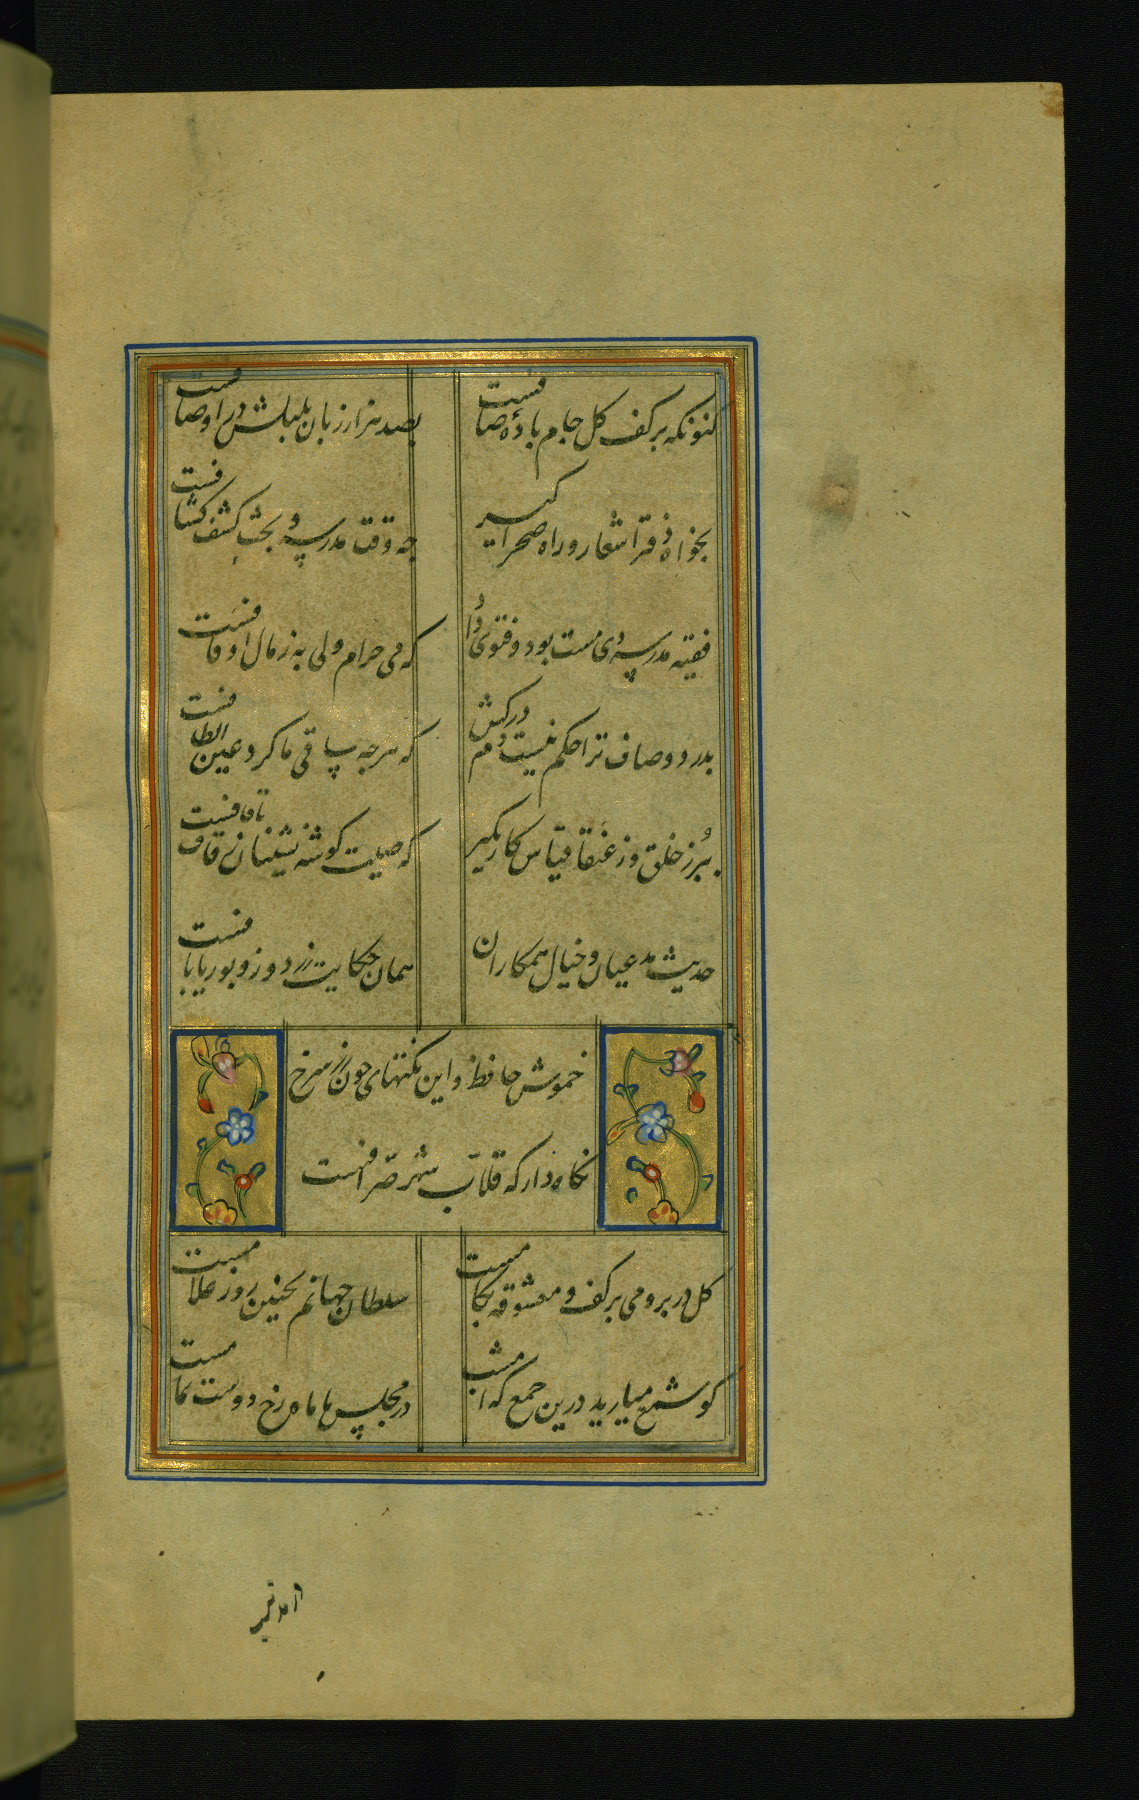 کنونکه بر کف کل جام بادهٔ صافست
بصد هزار زبان بلبلش در اوصافست
بخواه دفتر اشعار و راه صحرا کیر
چه وقت مدرسه و بحث کشف کشافست
فقیه مدرسه دی مست بود و فتوی داد
که می حرام ولی به ز مال اوقافست
بدرد و صاف ترا حکم نیست دم درکش
که هرچه ساقی ما کرد عین الطافست
ببر ز خلق و ز عنقا قیاس کار بکیر
که صیت کوشه نشینان ز قاف تا قافست
حدیث مدعیان و خیال همکاران
همان حکایت زردوز و بوریا بافست
خموش حافظ و این نکتهای چون زر سرخ
نکاه دار که قلاب شهر صرافست
کل در بر و می بر کف و معشوقه بکامست
سلطان جهانم بچنین روز غلامست
کو شمع میارید درین جمع که امشب
در مجلس ما ماه رخ دوست تمامست